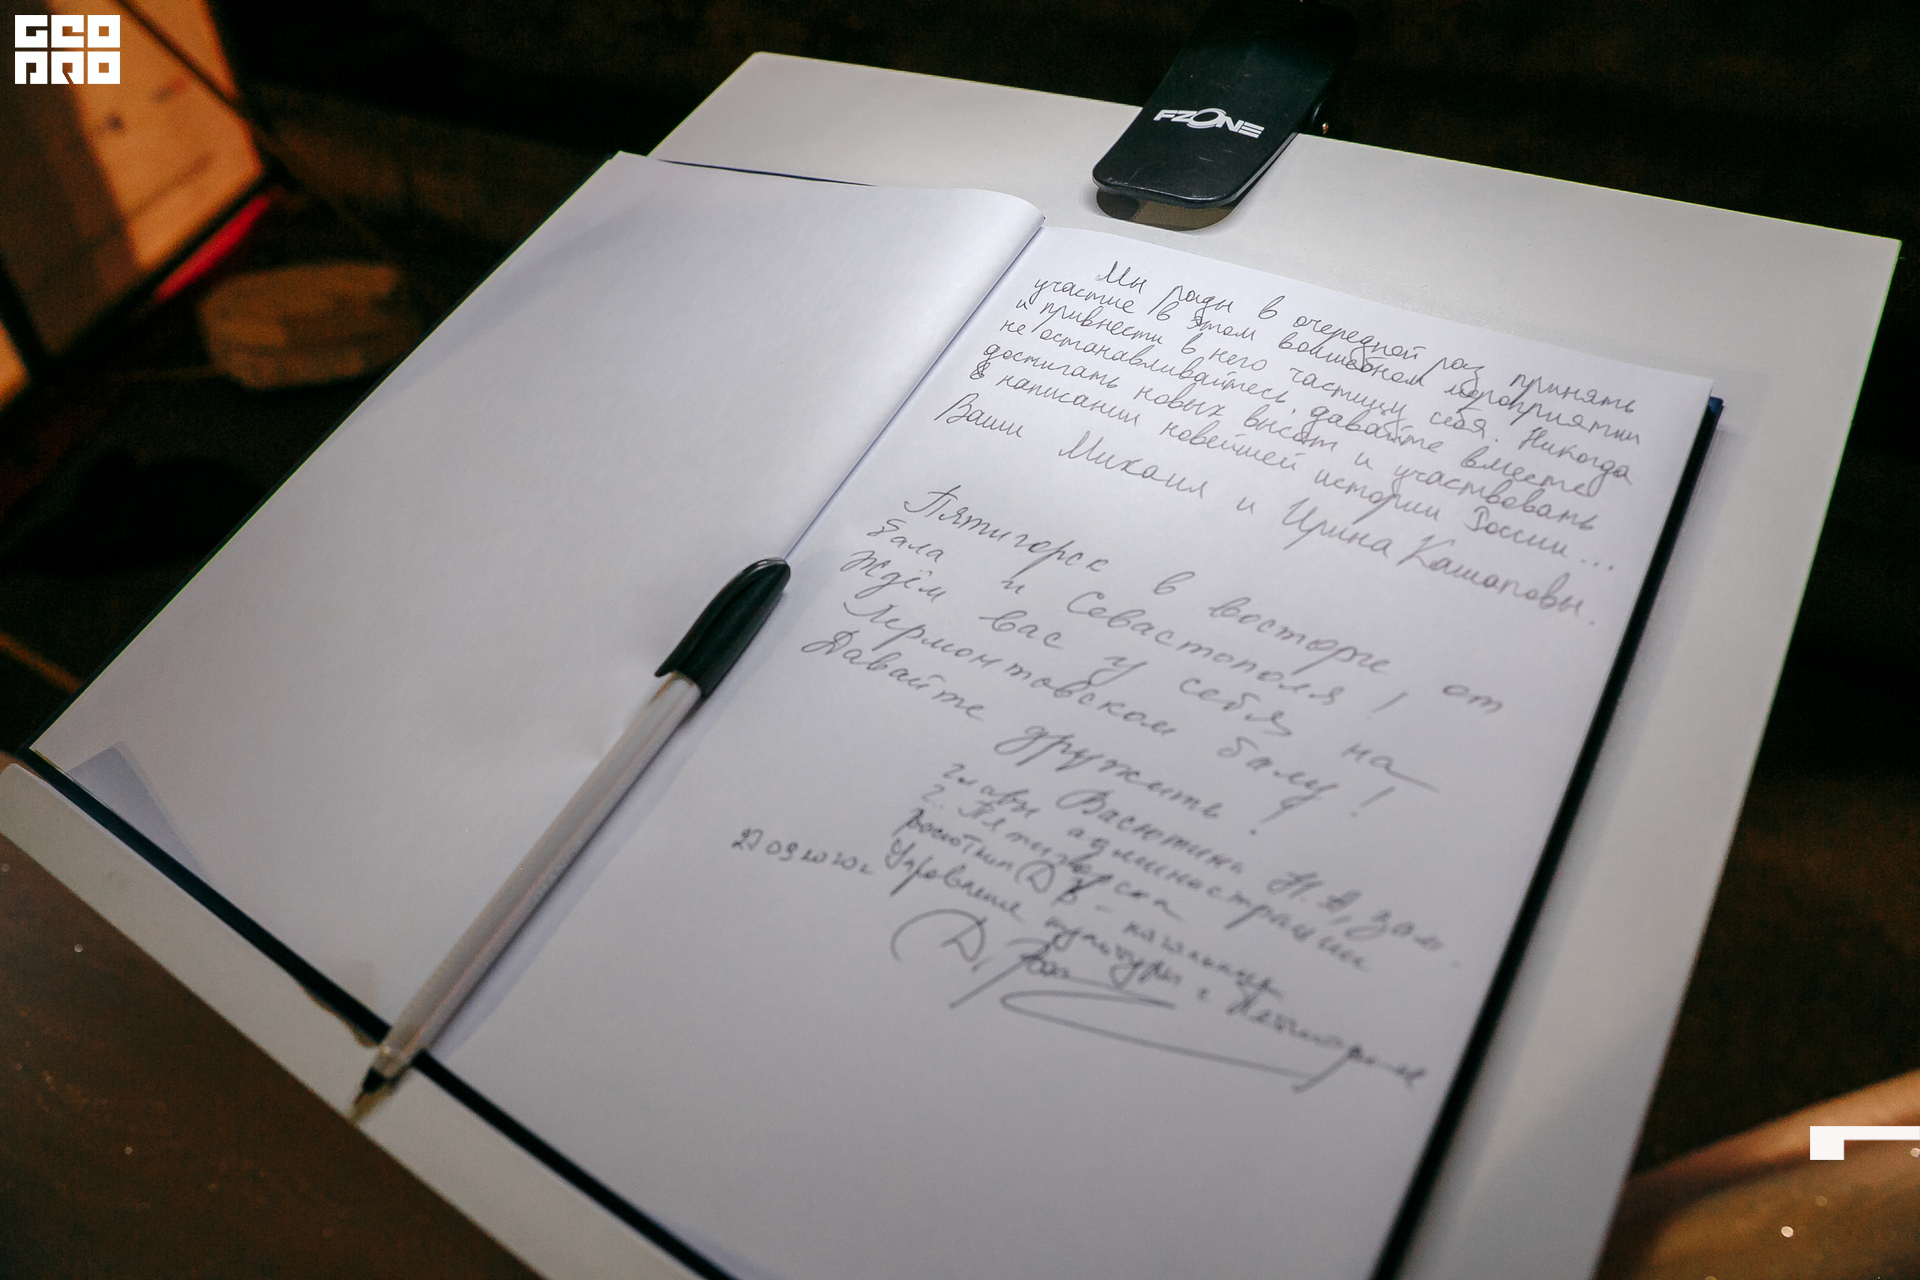 GEO
PRO
FZONE
Мы рады в очередной раз принять
участие в этом волшебном мероприятии
и привнести в него частицу себя. Никогда
не останавливайтесь, давайте вместе
достигать новых высот и участвовать
в написании новейшей истории России...
Ваши Михаил и Ирина Кашаповы.
Пятигорск в восторге от
бала и Севастополя!
Ждём вас у себя на
Лермонтовском балу!
Давайте дружить!
Васютина Н.А, зам.
главы администрации
г. Пятигорска
начальник
Управления культуры г. Пятигорска
27 09 2020г